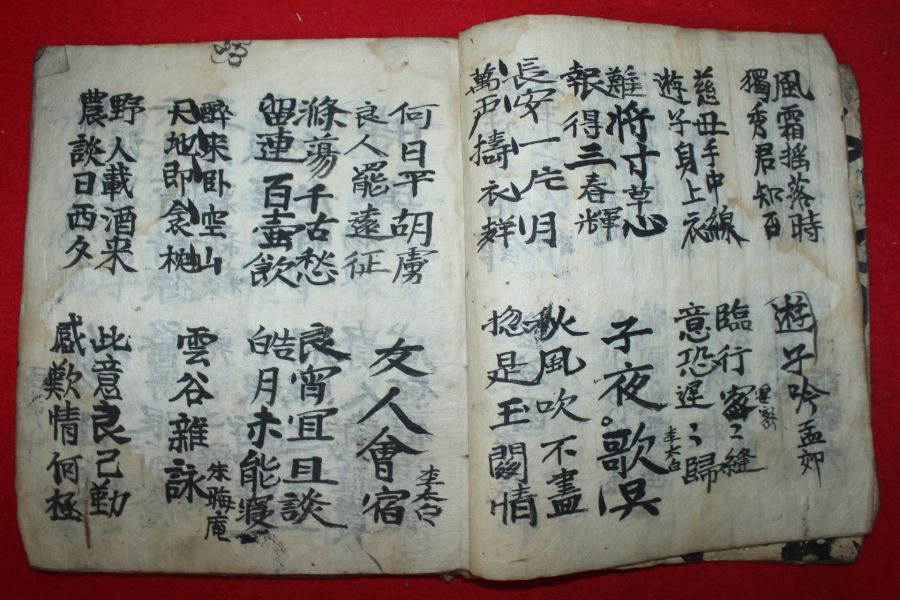 風霜搖落時
獨秀君知否
遊子吟 孟郊
慈母手中線
遊子身上衣
臨行密〻縫
意恐遲〻歸
難將寸草心
報得三春輝
子夜。歌吳
李太白
長安一片月
萬戶擣衣聲
秋風吹不盡
揔是玉關情
何日平胡虜
良人罷遠征
友人會宿
李太白
滌蕩千古愁
留連百壺飲
良宵宜且談
皓月未能寢
醉来臥空山
天地即衾枕
雲谷雜詠
朱晦庵
野人載酒来
農談日西夕
此意良已勤
感歎情何極